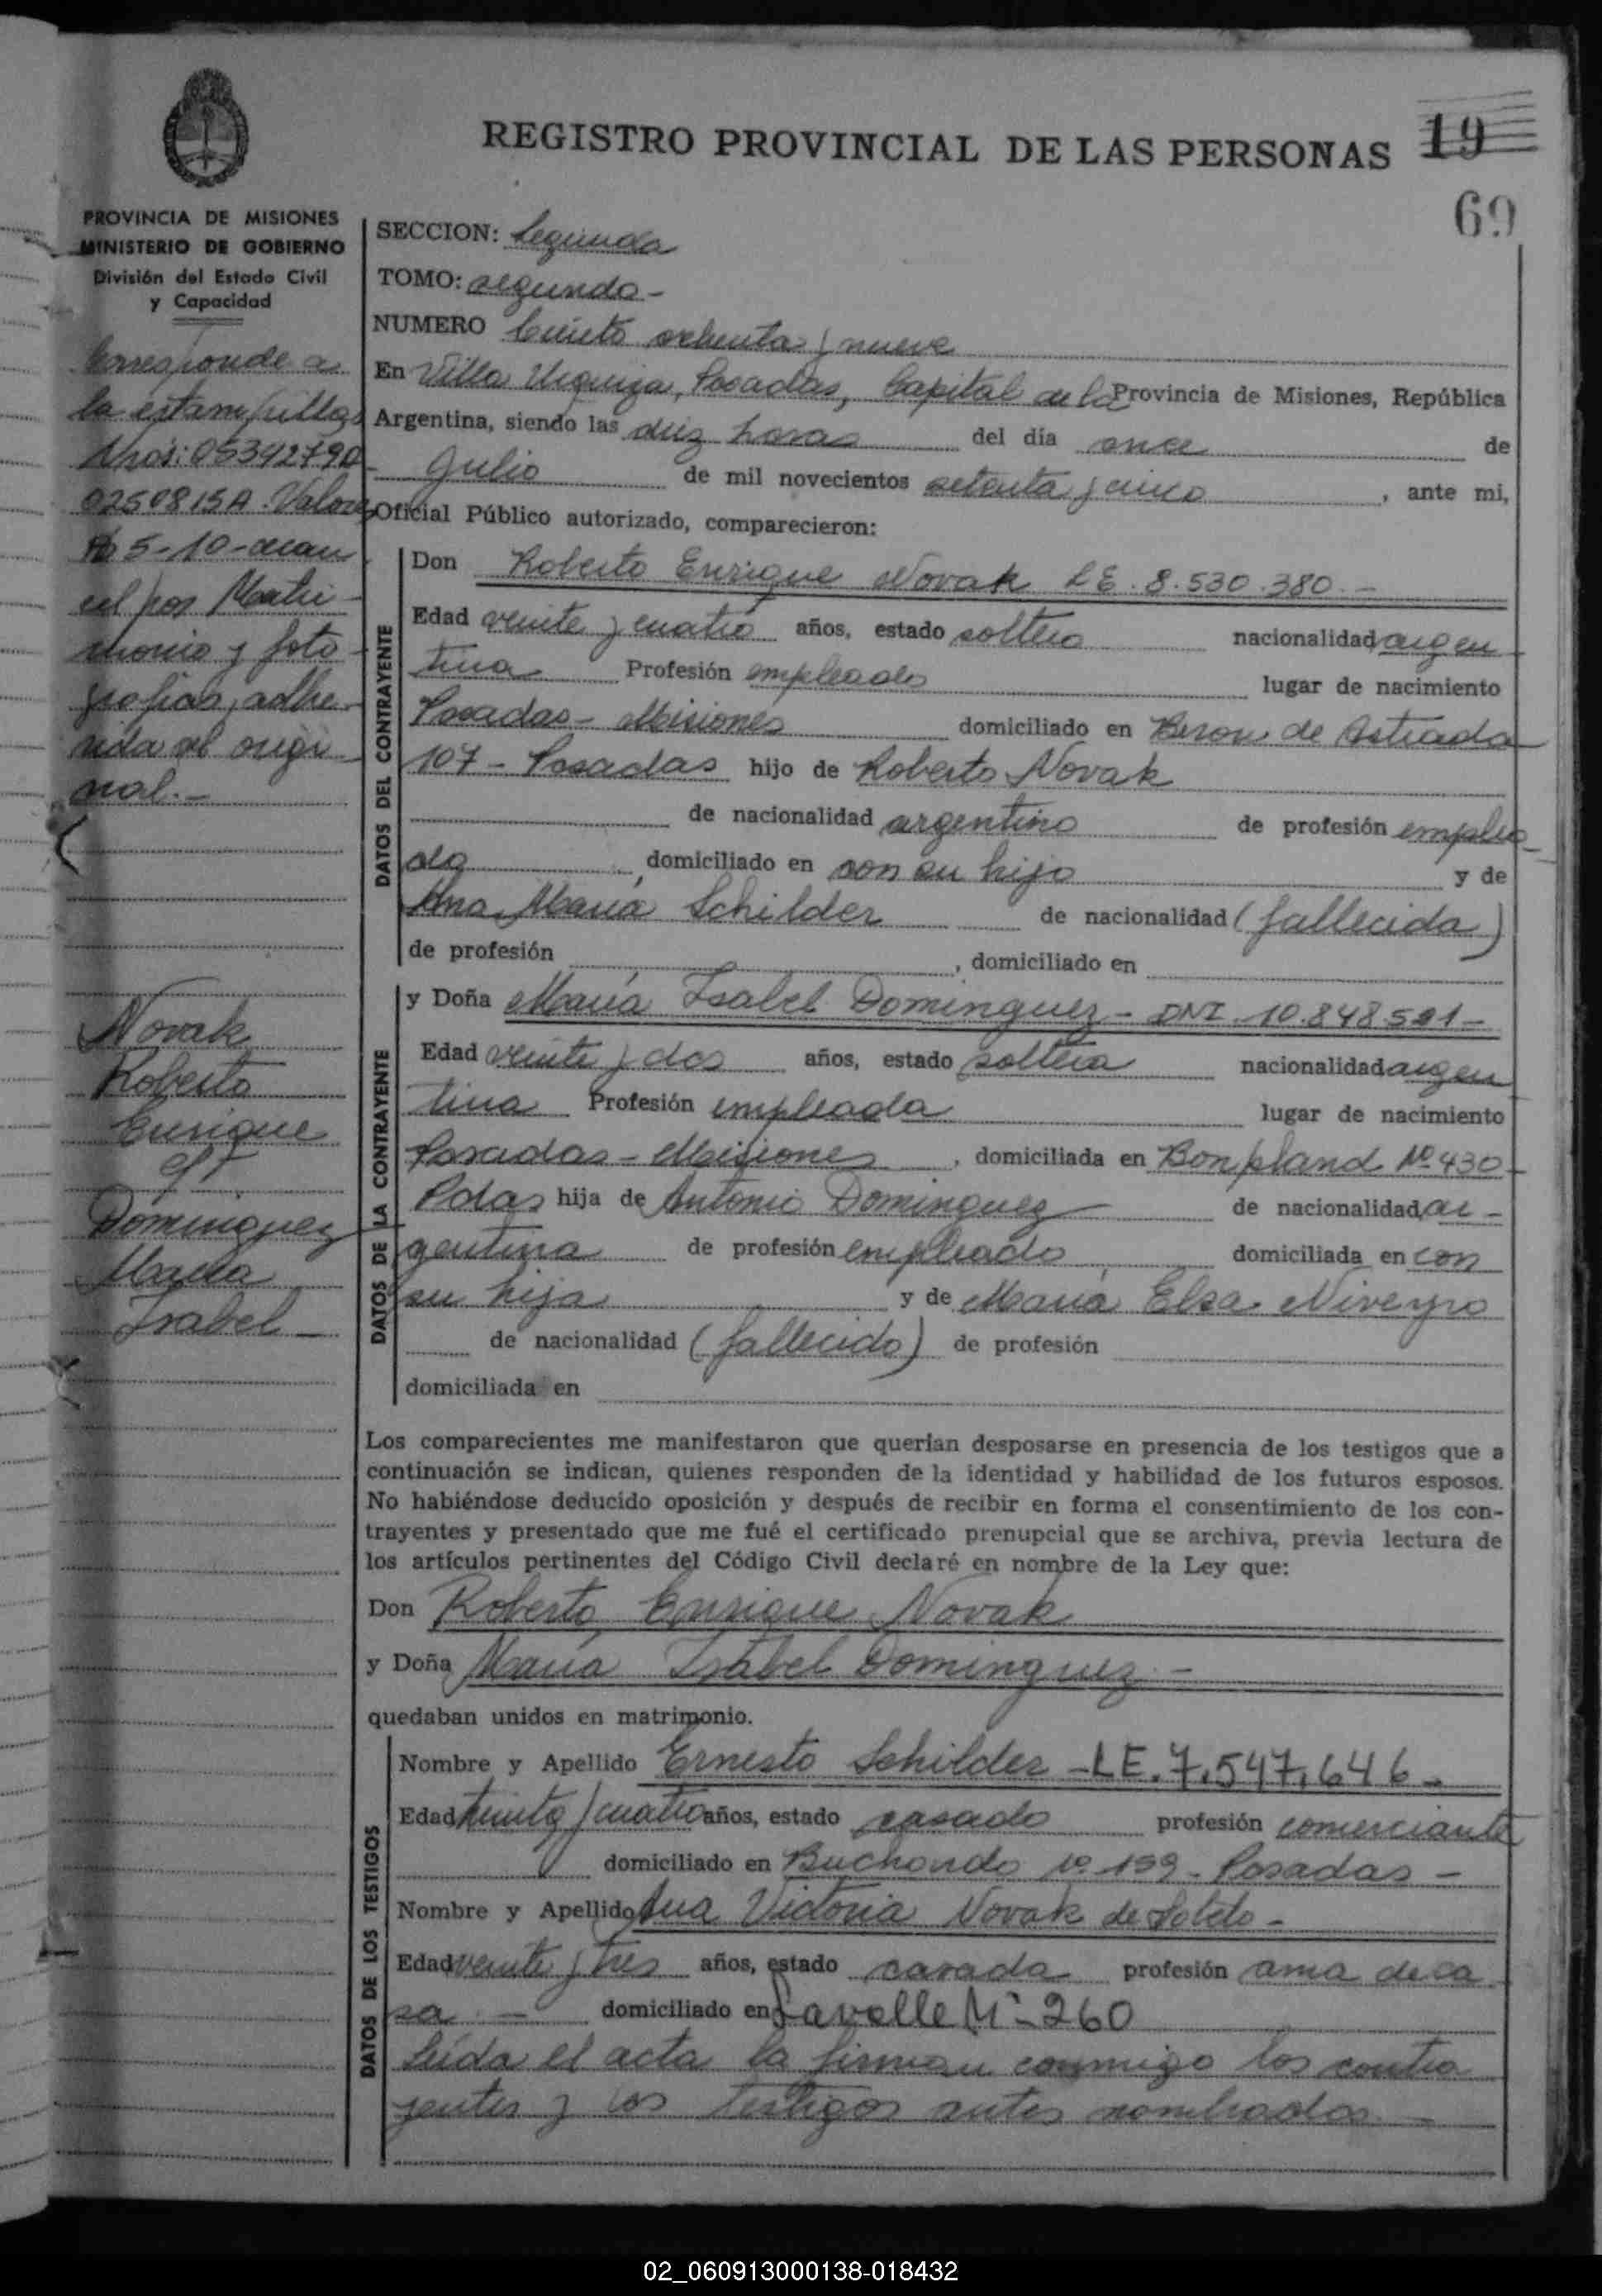 REGISTRO PROVINCIAL DE LAS PERSONAS 19
69
PROVINCIA DE MISIONES
MINISTERIO DE GOBIERNO
División del Estado Civil
y Capacidad
Corresponde a
la estampillas
Nros: 05342790
0250815A. Valores
5-10-
por Matri-
monio y foto-
grafias, adhe-
rida al origi-
nal.-
Novak
Roberto
Enrique
c/
Dominguez
María
Isabel -
SECCION: Segunda
TOMO: segundo -
NUMERO Ciento ochenta y nueve
En Villa Urquiza, Posadas, Capital de la Provincia de Misiones, República
Argentina, siendo las diez horas del día once de
Julio de mil novecientos setenta y cinco, ante mi,
Oficial Público autorizado, comparecieron:
DATOS DEL CONTRAYENTE
Don Roberto Enrique Novak LE. 8.530.380.-
Edad veinte y cuatro años, estado soltero nacionalidad argen
tina Profesión empleado lugar de nacimiento
Posadas - Misiones domiciliado en Beron de Astrada
107 - Posadas hijo de Roberto Novak
de nacionalidad argentino de profesión emplea-
do, domiciliado en con su hijo y de
Ana María Schilder de nacionalidad (fallecida)
de profesión , domiciliado en
DATOS DE LA CONTRAYENTE
y Doña María Isabel Dominguez - DNI. 10.848.521-
Edad veinte y dos años, estado soltera nacionalidad argen
tina Profesión empleada lugar de nacimiento
Posadas - Misiones, domiciliada en Bonpland Nº 430-
Pdas hija de Antonio Dominguez de nacionalidad ar-
gentina de profesión empleado, domiciliada en con
su hija y de María Elsa Niveyro
de nacionalidad (fallecido) de profesión
domiciliada en
Los comparecientes me manifestaron que querían desposarse en presencia de los testigos que a
continuación se indican, quienes responden de la identidad y habilidad de los futuros esposos.
No habiéndose deducido oposición y después de recibir en forma el consentimiento de los con-
trayentes y presentado que me fué el certificado prenupcial que se archiva, previa lectura de
los artículos pertinentes del Código Civil declaré en nombre de la Ley que:
Don Roberto Enrique Novak
y Doña María Isabel Dominguez -
quedaban unidos en matrimonio.
DATOS DE LOS TESTIGOS
Nombre y Apellido Ernesto Schilder - LE. 7.547.646-
Edad treinta y cuatro años, estado casado profesión comerciante
domiciliado en Buchardo Nº 159 - Posadas -
Nombre y Apellido Ana Victoria Novak de Sotelo -
Edad veinte y tres años, estado casada profesión ama de ca
sa. - domiciliado en Lavalle Nº-260
Leída el acta la firman conmigo los contra
yentes y los testigos antes nombrados. -
02_060913000138-018432